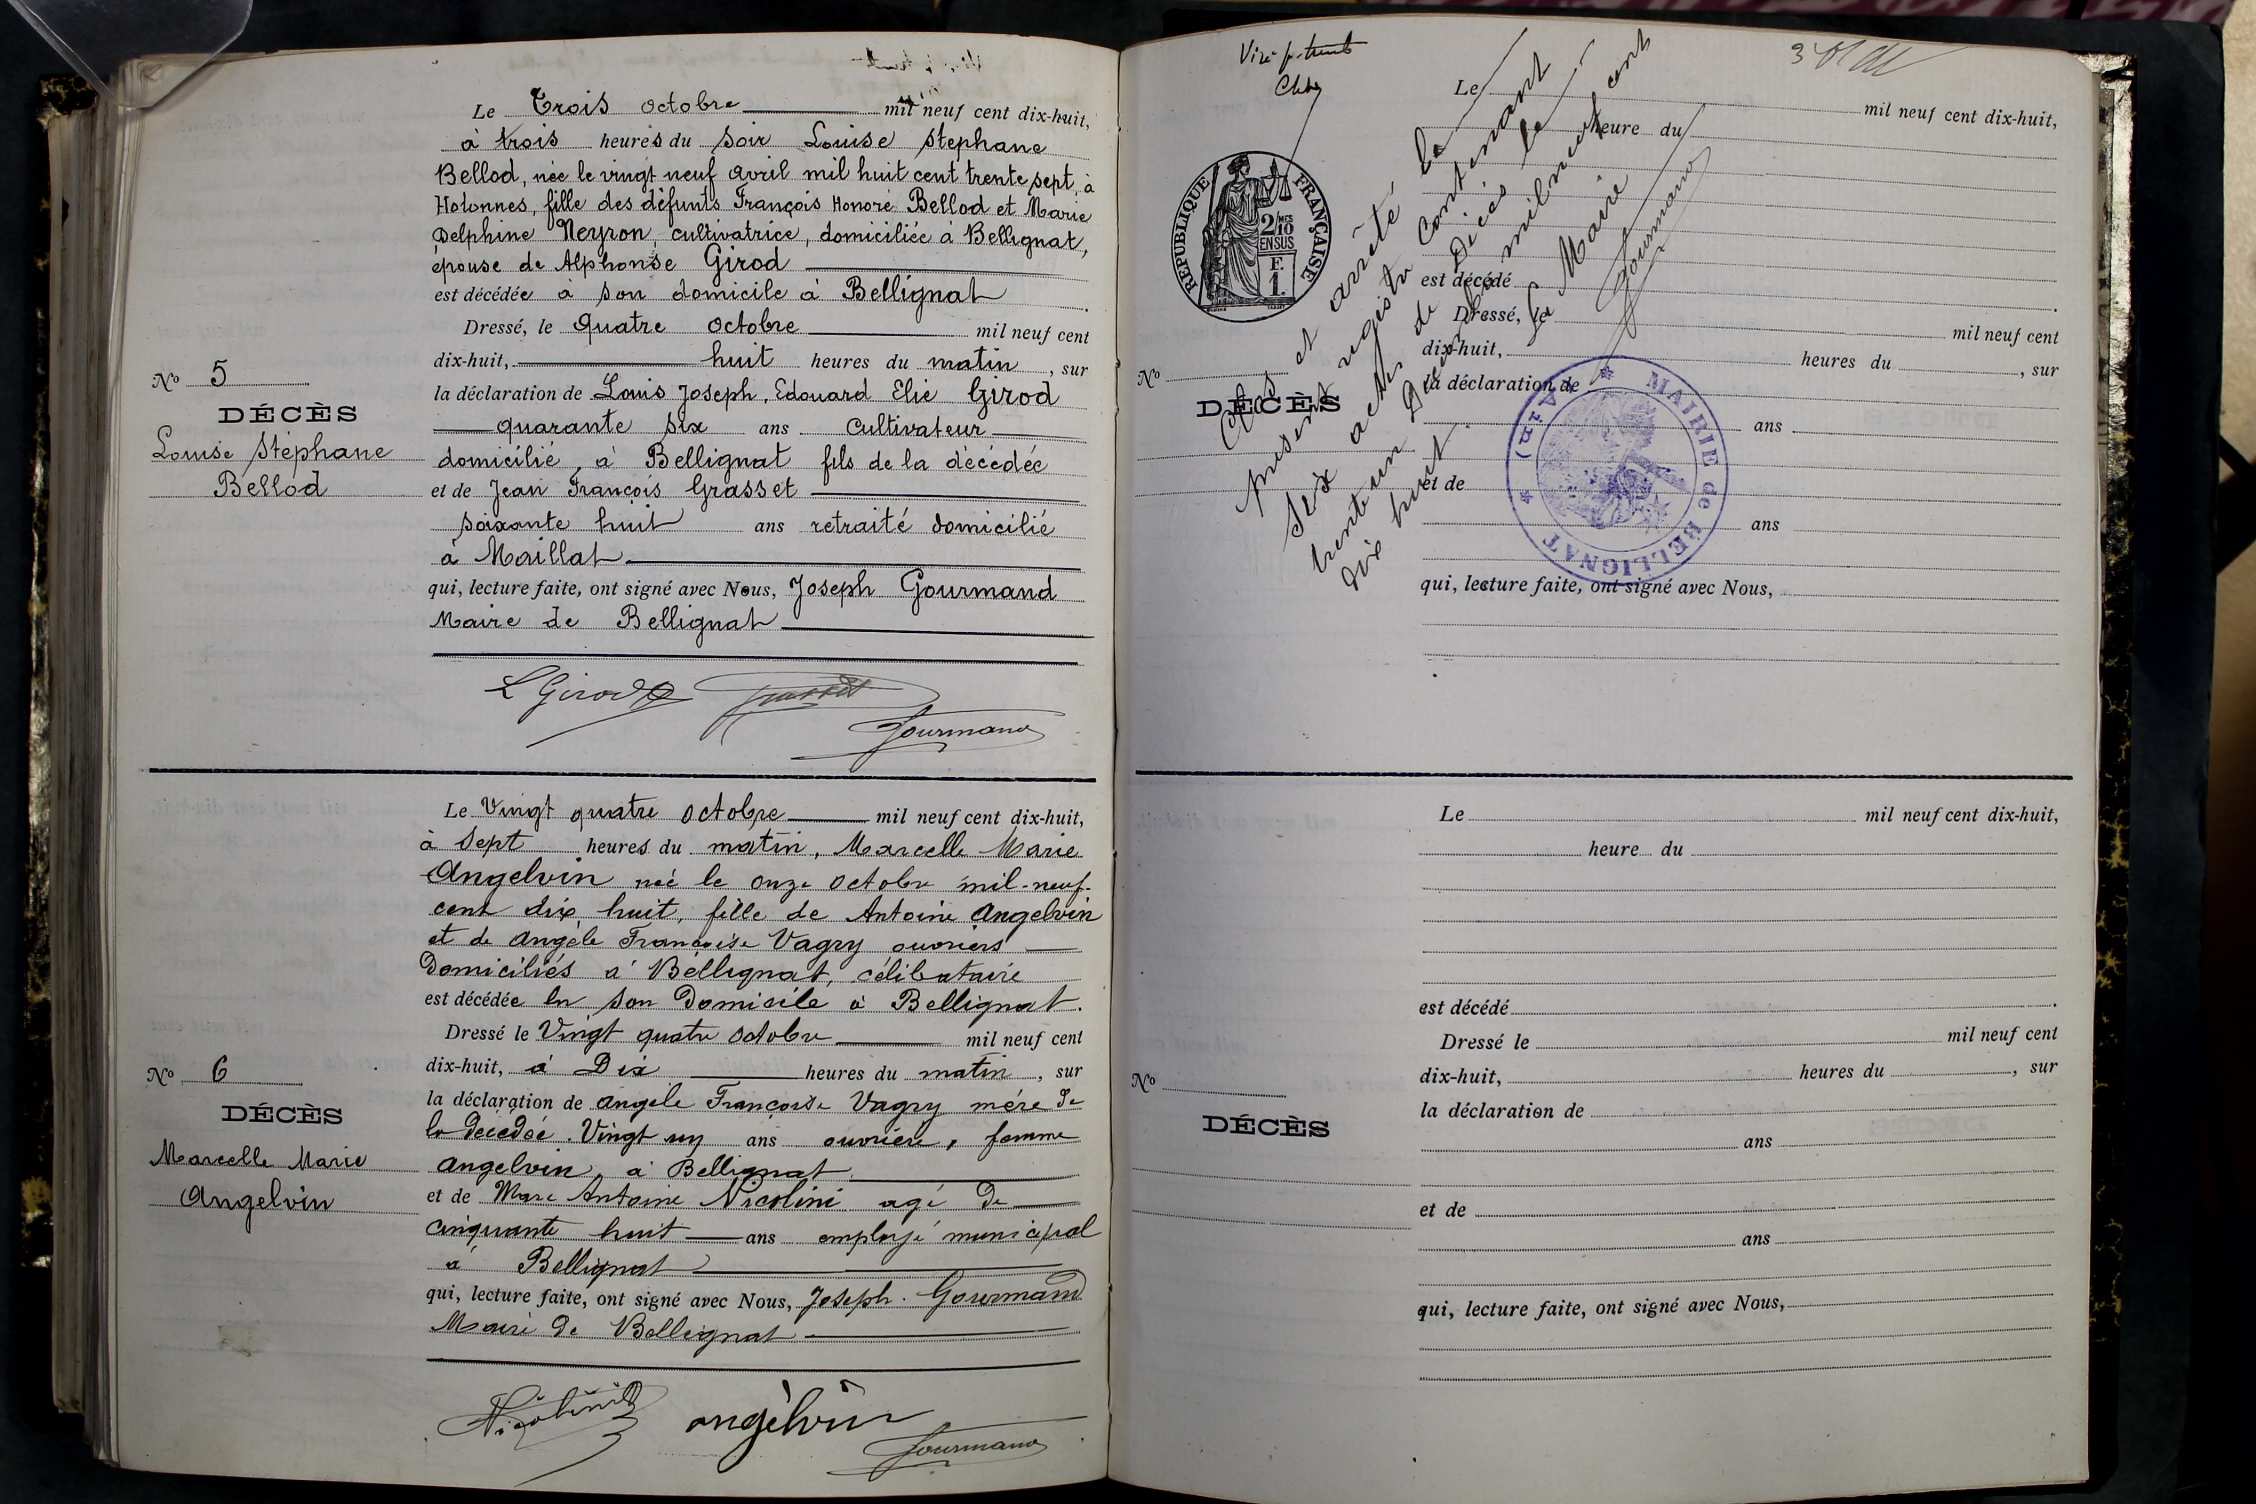 Le Trois octobre mil neuf cent dix-huit,
à trois heures du soir Louise Stephane
Bellod, née le vingt neuf avril mil huit cent trente sept, à
Hotonnes, fille des défunts François Honoré Bellod et Marie
Delphine Neyron, cultivatrice, domiciliée à Bellignat,
épouse de Alphonse Girod
est décédée à son domicile à Bellignat.
Dressé, le quatre octobre mil neuf cent
dix-huit, huit heures du matin, sur
la déclaration de Louis Joseph, Edouard Elie Girod
quarante six ans cultivateur
domicilié à Bellignat fils de la décédée
et de Jean François Grasset
soixante huit ans retraité domicilié
à Maillat
qui, lecture faite, ont signé avec Nous, Joseph Gourmand
Maire de Bellignat
No 5
DÉCÈS
Louise Stéphane
Bellod
L Girod Grasset
Gourmand
Le Vingt quatre octobre mil neuf cent dix-huit,
à sept heures du matin, Marcelle Marie
Angelvin née le onze octobre mil-neuf-
cent dix huit, fille de Antoine Angelvin
et de Angèle Françoise Vagry ouvriers
Domiciliés à Bellignat, célibataire
est décédée en son Domicile à Bellignat.
Dressé le Vingt quatre octobre mil neuf cent
dix-huit, à Dix heures du matin, sur
la déclaration de Angèle Françoise Vagry mère de
la décédée. Vingt un ans ouvrière, femme
Angelvin, à Bellignat
et de Marc Antoine Nicolini agé de
cinquante huit ans employé municipal
à Bellignat
qui, lecture faite, ont signé avec Nous, Joseph Gourmand
Maire de Bellignat
No 6
DÉCÈS
Marcelle Marie
Angelvin
Nicolini angelvin
Gourmand
RÉPUBLIQUE FRANÇAISE
2/10 MES
EN SUS
F.
1.
Clos et arrêté le
présent registre contenant
six actes de Décès le
trente un Décembre mil neuf cent
dix huit.
Le Maire
Gourmand
MAIRIE de BELLIGNAT (Ain)
Le mil neuf cent dix-huit,
heure du
est décédé
Dressé, le mil neuf cent
dix-huit, heures du , sur
la déclaration de
ans
et de
ans
qui, lecture faite, ont signé avec Nous,
No
DÉCÈS
Le mil neuf cent dix-huit,
heure du
est décédé
Dressé le mil neuf cent
dix-huit, heures du , sur
la déclaration de
ans
et de
ans
qui, lecture faite, ont signé avec Nous,
No
DÉCÈS